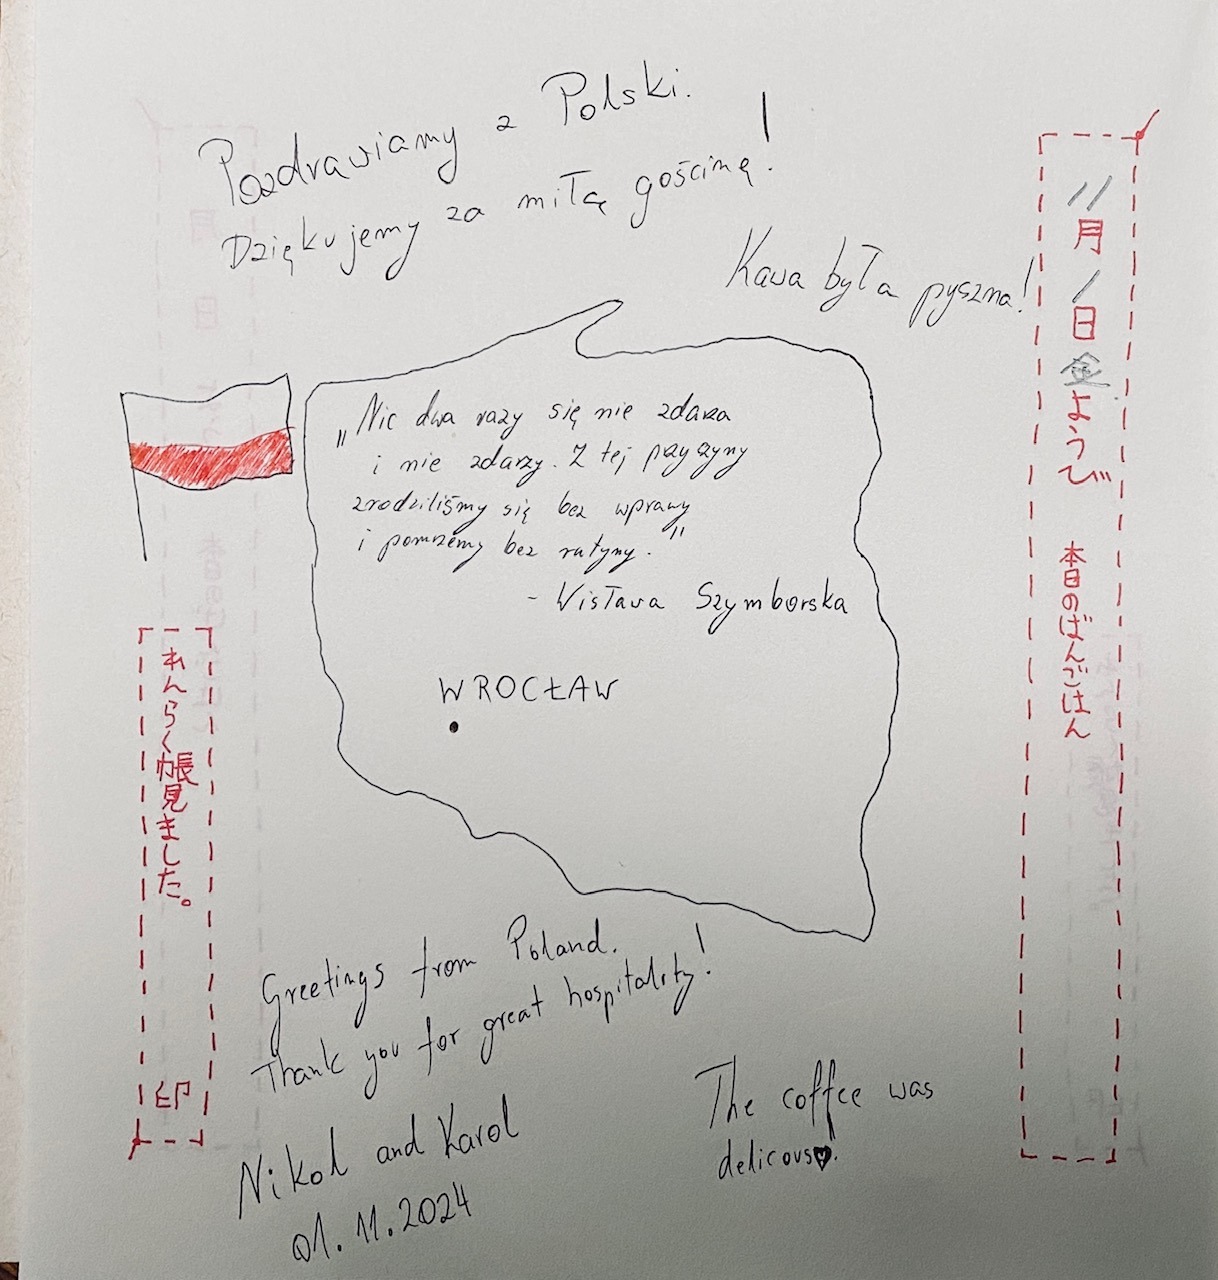 Pozdrawiamy z Polski.
Dziękujemy za miłą gościnę!
Kawa była pyszna!
„Nic dwa razy się nie zdarza
i nie zdarzy. Z tej przyczyny
zrodziliśmy się bez wprawy
i pomrzemy bez rutyny."
- Wisława Szymborska
WROCŁAW
Greetings from Poland.
Thank you for great hospitality!
Nikol and Karol
01.11.2024
The coffee was
delicous♥.
11月1日金ようび 本日のばんごはん
れんらく帳見ました。 印